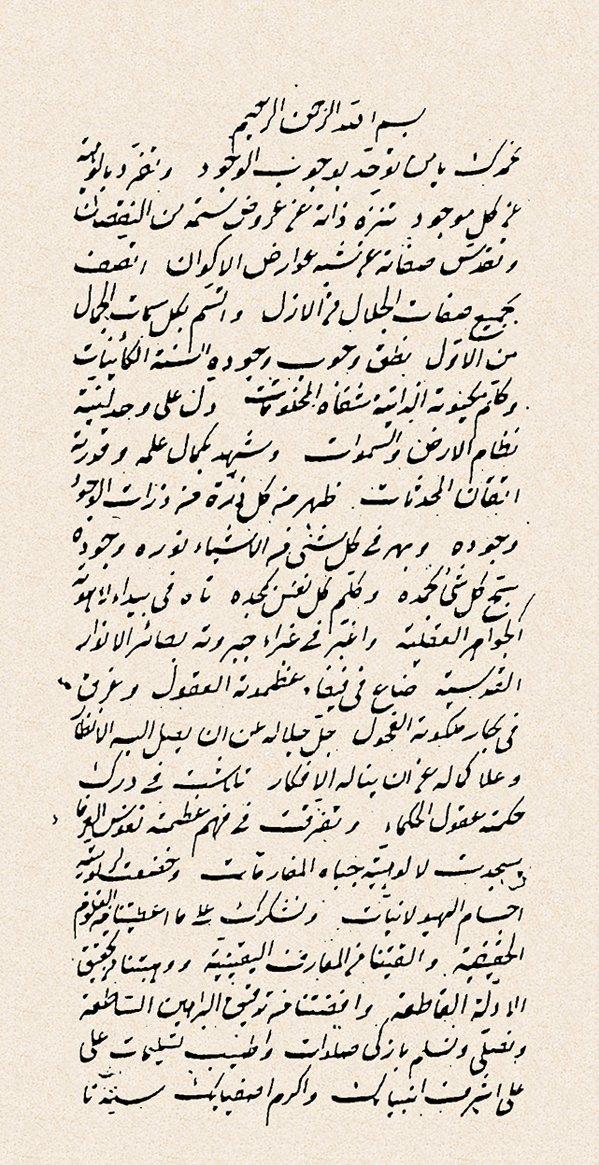 بسم الله الرحمن الرحيم
نحمدك يا من توحّد بوجوب الوجود وتفرّد بالوهيته
عن كل موجود تنزه ذاته عن عروض سمة من النقصان
وتقدّس صفاته عن شبه عوارض الاكوان اتصف
بجميع صفات الجلال في الازل واتسم بكل سمات الجمال
من الاول نطق بوجوب وجوده السنة الكائنات
وكلّم بكينونته الذاتية شفاه المخلوقات دل على وحدانيته
نظام الارض والسموات وشهد بكمال علمه وقدرته
اتقان المحدثات ظهر من كل ذرّة من ذرات الوجود
وجوده وبهر في كل شئ من الاشياء نوره وجوده
يسبح كل شئ بحمده وكلّم كل نفس بمجده تاه في بيداء لاهوته
الجواهر العقلية واغبر في غبراء جبروته بصائر الانوار
القدسية ضاع في فيفاء عظموته العقول وغرق
في بحار ملكوته الفحول جلّ جلاله عن ان يصل اليه الانظار
وعلا كماله عن ان يناله الافكار تلاشت في درك
حكمته عقول الحكماء وتفرقت في فهم عظمته نفوس العرفا
سجدت لالوهيّته جباه المفارقات وخضعت لربوبيته
اجسام الهيولانيّات ونشكرك على ما اعطيتنا من العلوم
الحقيقية والقيتنا من المعارف اليقينية ووهبتنا من تحقيق
الادلّة القاطعة وافضتنا من توفيق البراهين الساطعة
ونصلّي ونسلم بازكى صلوات واطيب تسليمات على
على اشرف انبيائك واكرم اصفيائك سيدنا